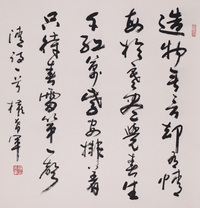 造物无言却有情
每于寒尽觉春生
千红万紫安排着
只待春雷第一声
清诗一首